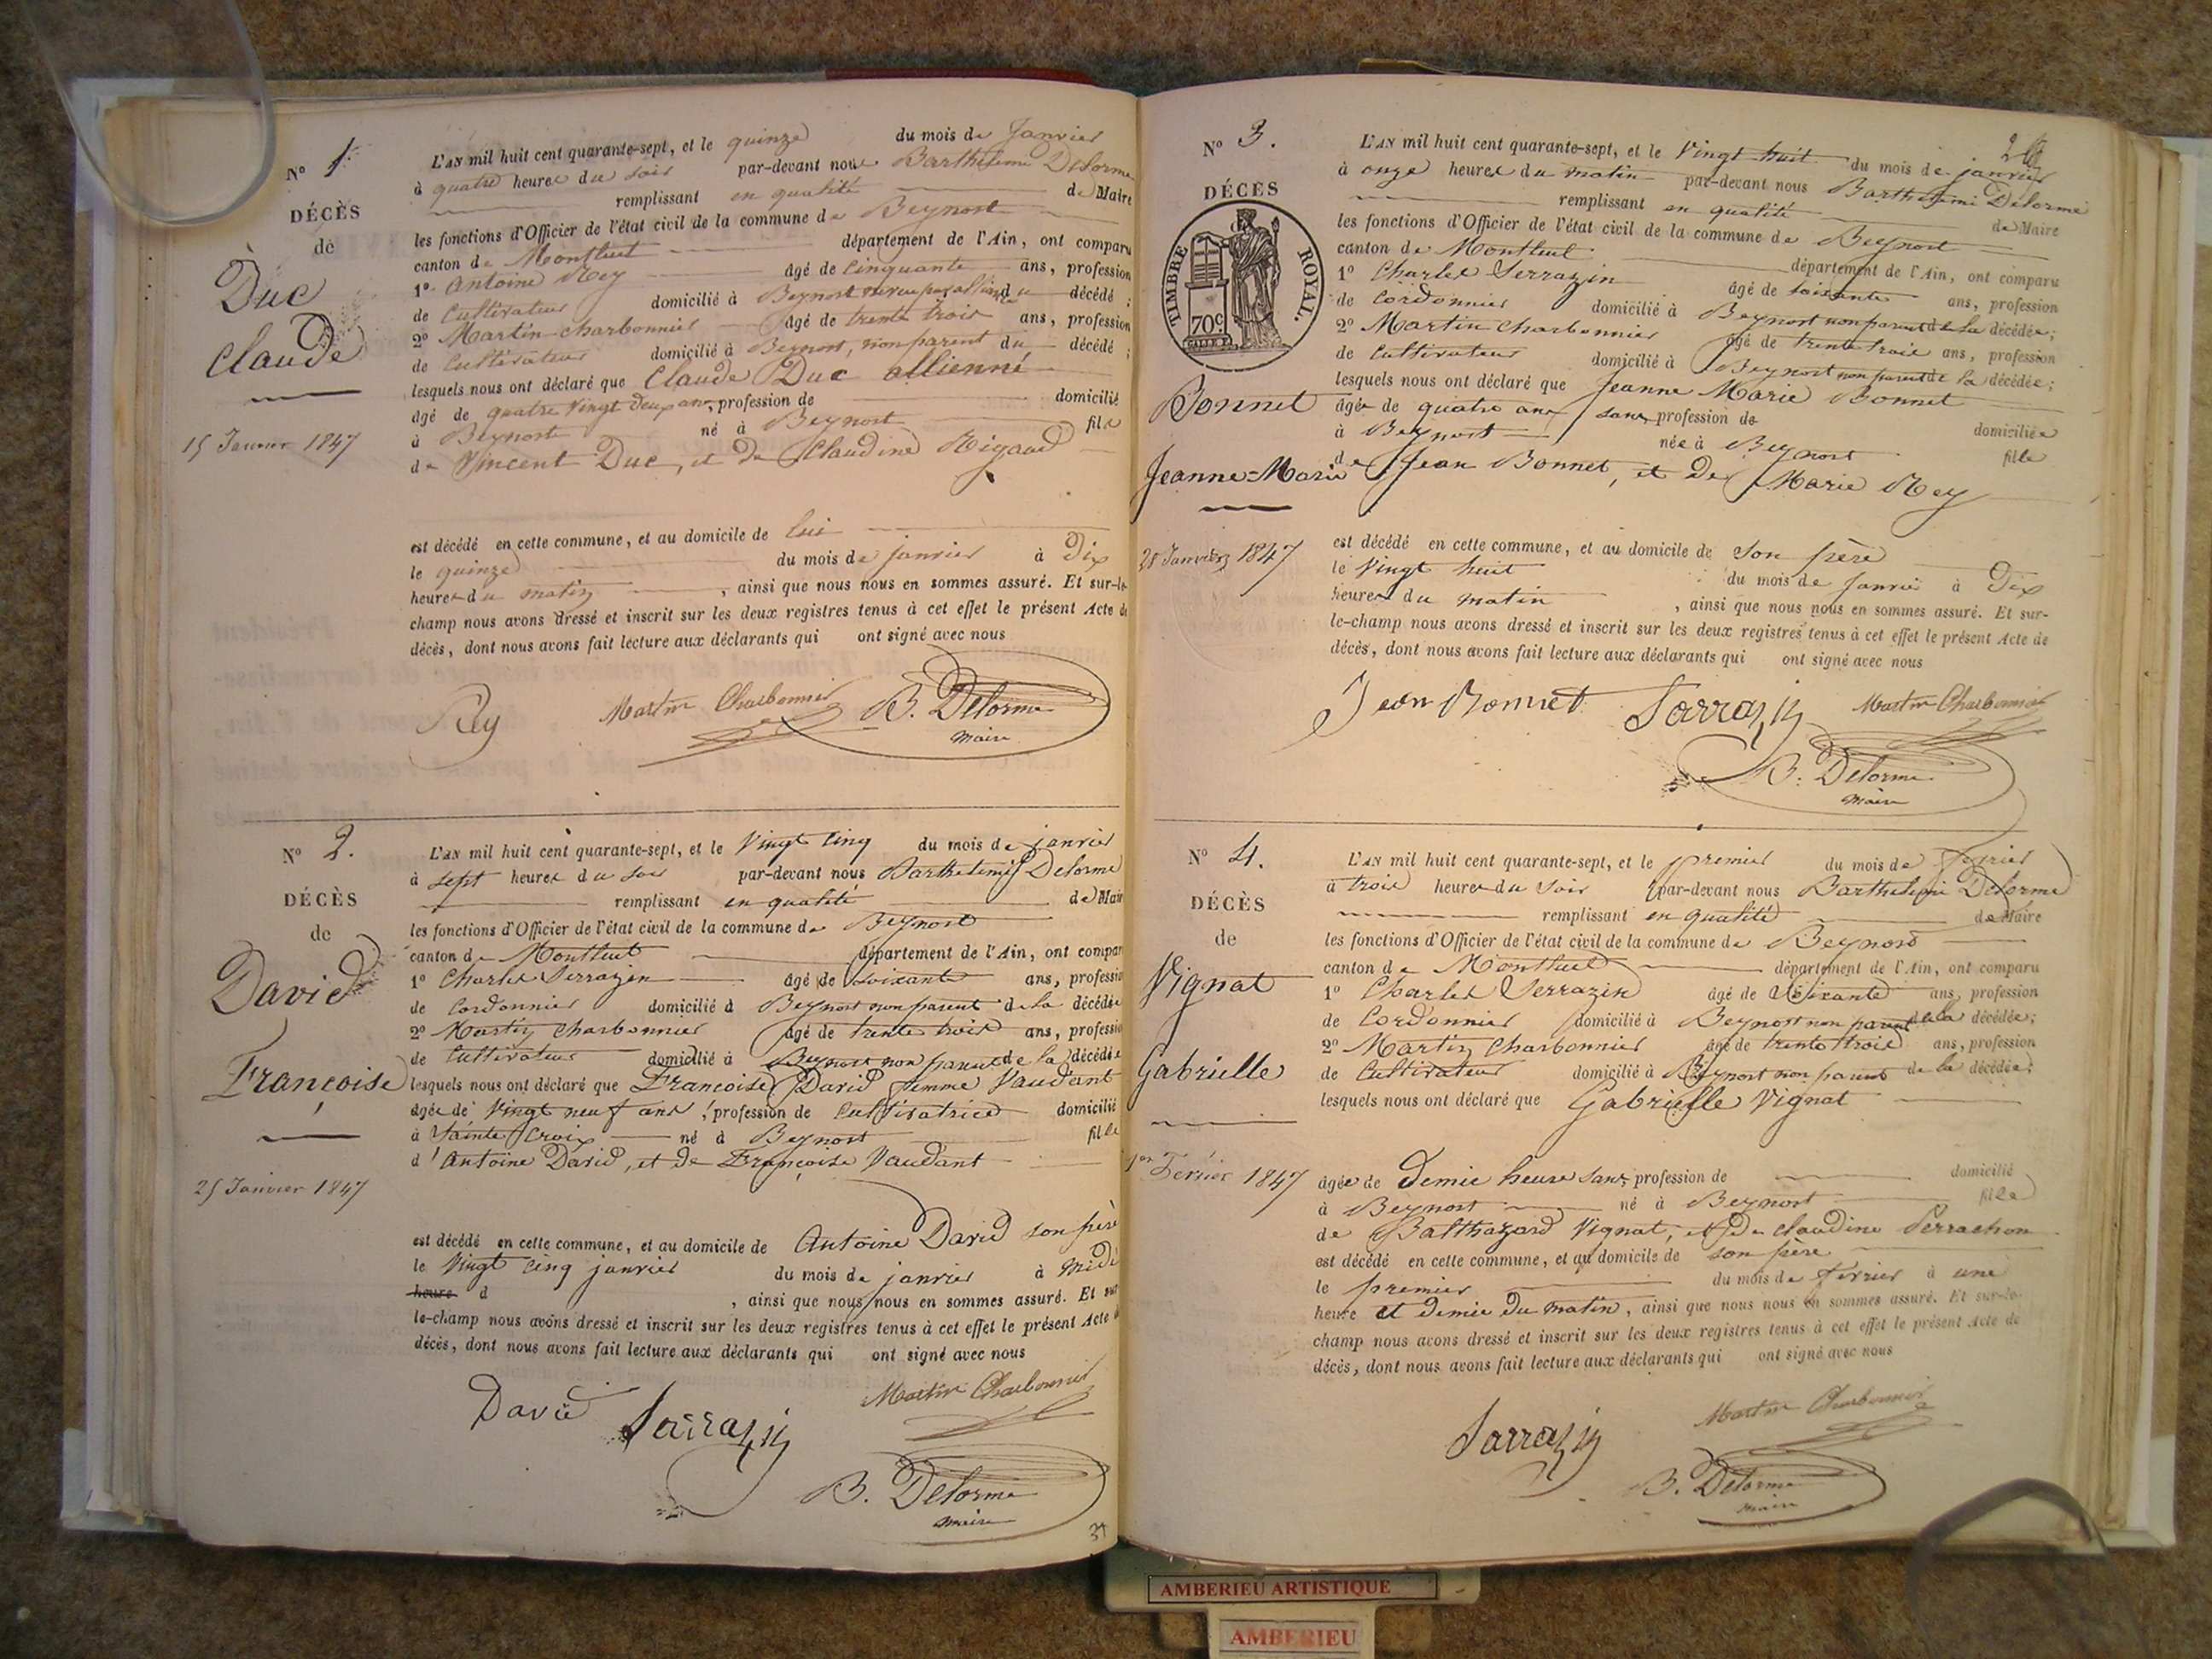 N° 1.
DÉCÈS
de
Duc
Claude
15 Janvier 1847
L'AN mil huit cent quarante-sept, et le quinze du mois de Janvier
à quatre heures du soir par-devant nous Barthelemi Delorme
remplissant en qualité de Maire
les fonctions d'Officier de l'état civil de la commune de Beynost
canton de Montluel département de l'Ain, ont comparu
1° Antoine Rey âgé de Cinquante ans, profession
de Cultivateur domicilié à Beynost neveu par alliance du décédé;
2° Martin Charbonnier âgé de trente trois ans, profession
de Cultivateur domicilié à Beynost, non parent du décédé;
lesquels nous ont déclaré que Claude Duc
âgé de quatre vingt deux ans, profession de domicilié
à Beynost né à Beynost fils
de Vincent Duc, et de Claudine Rigaud
est décédé en cette commune, et au domicile de lui
le quinze du mois de janvier à Dix
heures du matin, ainsi que nous nous en sommes assuré. Et sur-le-
champ nous avons dressé et inscrit sur les deux registres tenus à cet effet le présent Acte de
décès, dont nous avons fait lecture aux déclarants qui ont signé avec nous
Rey Martin Charbonnier B. Delorme
maire
N° 2.
DÉCÈS
de
David
Françoise
25 Janvier 1847
L'AN mil huit cent quarante-sept, et le Vingt Cinq du mois de janvier
à sept heures du soir par-devant nous Barthelemi Delorme
remplissant en qualité de Maire
les fonctions d'Officier de l'état civil de la commune de Beynost
canton de Montluel département de l'Ain, ont comparu
1° Charles Serrazin âgé de Soixante ans, profession
de Cordonnier domicilié à Beynost non parent de la décédée
2° Martin Charbonnier âgé de trente trois ans, profession
de Cultivateur domicilié à Beynost non parent de la décédée
lesquels nous ont déclaré que Francoise David femme Vaudant
âgée de Vingt neuf ans, profession de Cultivatrice domicilié
à Sainte Croix né à Beynost fille
d'Antoine David, et de Françoise Vaudant
est décédé en cette commune, et au domicile de Antoine David son père
le Vingt Cinq janvier du mois de janvier à midi
heure d , ainsi que nous nous en sommes assuré. Et sur
le-champ nous avons dressé et inscrit sur les deux registres tenus à cet effet le présent Acte de
décès, dont nous avons fait lecture aux déclarants qui ont signé avec nous
David Sarrazin Martin Charbonnier
B. Delorme
maire
N° 3.
DÉCÈS
TIMBRE ROYAL.
70c
Bonnet
Jeanne-Marie
28 Janvier 1847
L'AN mil huit cent quarante-sept, et le Vingt huit du mois de janvier
à onze heures du matin par-devant nous Barthelemi Delorme
remplissant en qualité de Maire
les fonctions d'Officier de l'état civil de la commune de Beynost
canton de Montluel département de l'Ain, ont comparu
1° Charles Serrazin âgé de soixante ans, profession
de Cordonnier domicilié à Beynost non parent de la décédée;
2° Martin Charbonnier âgé de trente trois ans, profession
de Cultivateur domicilié à Beynost non parent de la décédée;
lesquels nous ont déclaré que Jeanne Marie Bonnet
âgée de quatre ans sans profession de domiciliée
à Beynost née à Beynost fille
de Jean Bonnet, et de Marie Rey
est décédé en cette commune, et au domicile de son père
le Vingt huit du mois de Janvier à Dix
heures du matin, ainsi que nous nous en sommes assuré. Et sur-
le-champ nous avons dressé et inscrit sur les deux registres tenus à cet effet le présent Acte de
décès, dont nous avons fait lecture aux déclarants qui ont signé avec nous
Jean Bonnet Sarrazin Martin Charbonnier
B. Delorme
maire
N° 4.
DÉCÈS
de
Vignat
Gabrielle
1er Fevrier 1847
L'AN mil huit cent quarante-sept, et le premier du mois de fevrier
à trois heures du soir par-devant nous Barthelemi Delorme
remplissant en qualité de Maire
les fonctions d'Officier de l'état civil de la commune de Beynost
canton de Montluel département de l'Ain, ont comparu
1° Charles Serrazin âgé de Soixante ans, profession
de Cordonnier domicilié à Beynost non parent de la décédée;
2° Martin Charbonnier âgé de trente trois ans, profession
de Cultivateur domicilié à Beynost non parent de la décédée;
lesquels nous ont déclaré que Gabrielle Vignat
âgée de Demie heure sans profession de domicilié
à Beynost né à Beynost fille
de Balthazard Vignat, et de Claudine Perrachon
est décédé en cette commune, et au domicile de son père
le premier du mois de fevrier à une
heure et demie du matin, ainsi que nous nous en sommes assuré. Et sur-le-
champ nous avons dressé et inscrit sur les deux registres tenus à cet effet le présent Acte de
décès, dont nous avons fait lecture aux déclarants qui ont signé avec nous
Sarrazin Martin Charbonnier
B. Delorme
maire
AMBERIEU ARTISTIQUE
AMBERIEU